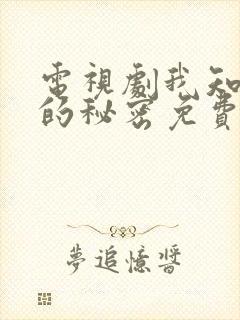 電視劇我知
的秘密免費
夢追憶醬